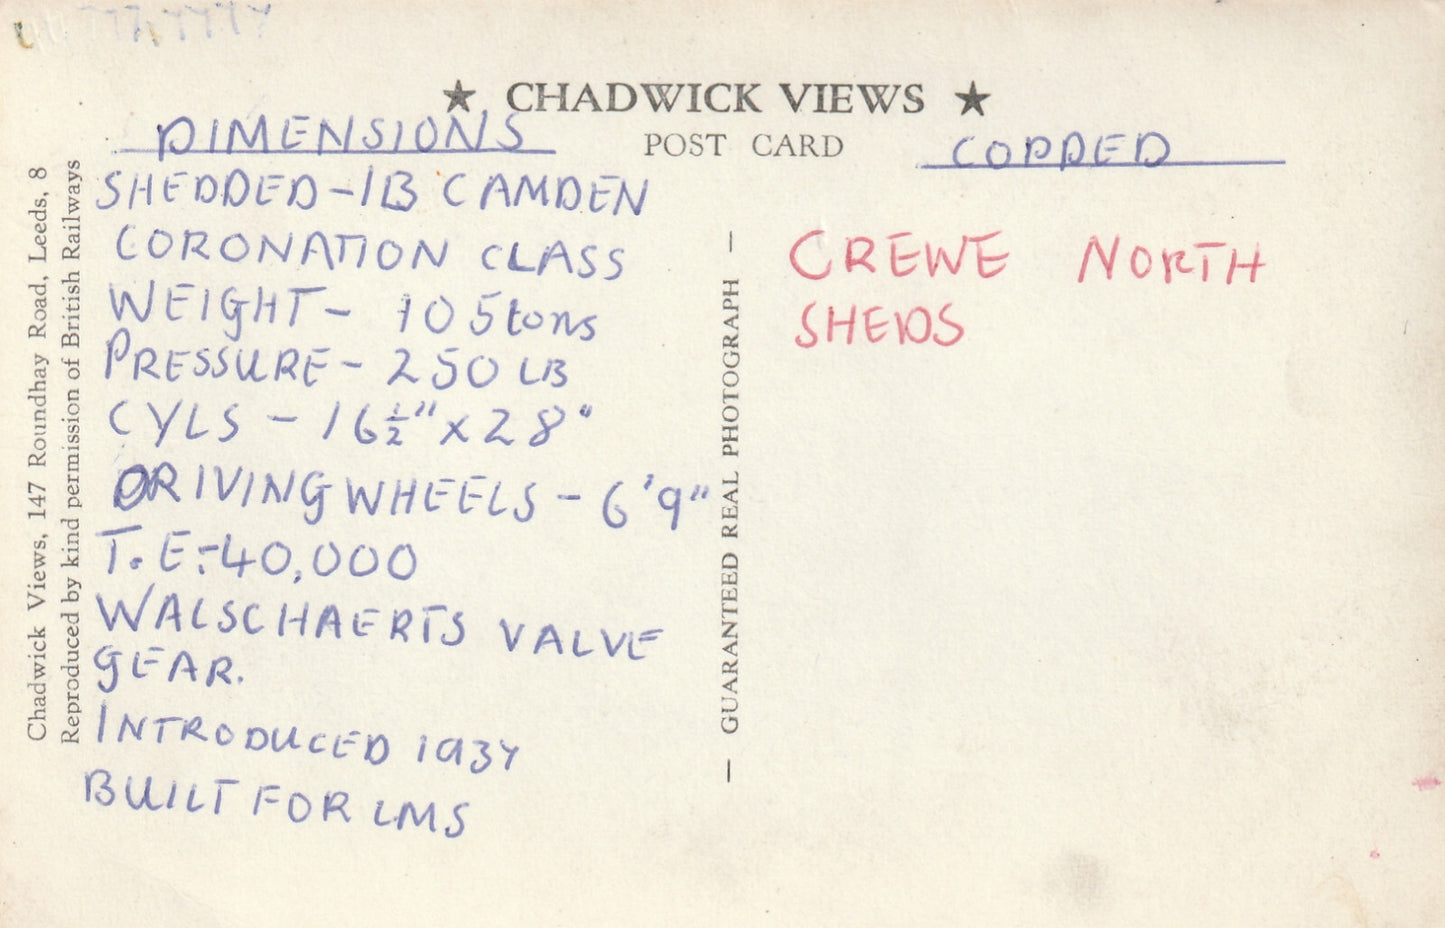 ★ CHADWICK VIEWS ★
POST CARD
DIMENSIONS
SHEDDED - 1B CAMDEN
CORONATION CLASS
WEIGHT - 105 tons
PRESSURE - 250 LB
CYLS - 16½" x 28"
DRIVING WHEELS - 6'9"
T.E:- 40,000
WALSCHAERTS VALVE
GEAR.
INTRODUCED 1937
BUILT FOR LMS
COPPED
CREWE NORTH
SHEDS
Chadwick Views, 147 Roundhay Road, Leeds, 8
Reproduced by kind permission of British Railways
— GUARANTEED REAL PHOTOGRAPH —